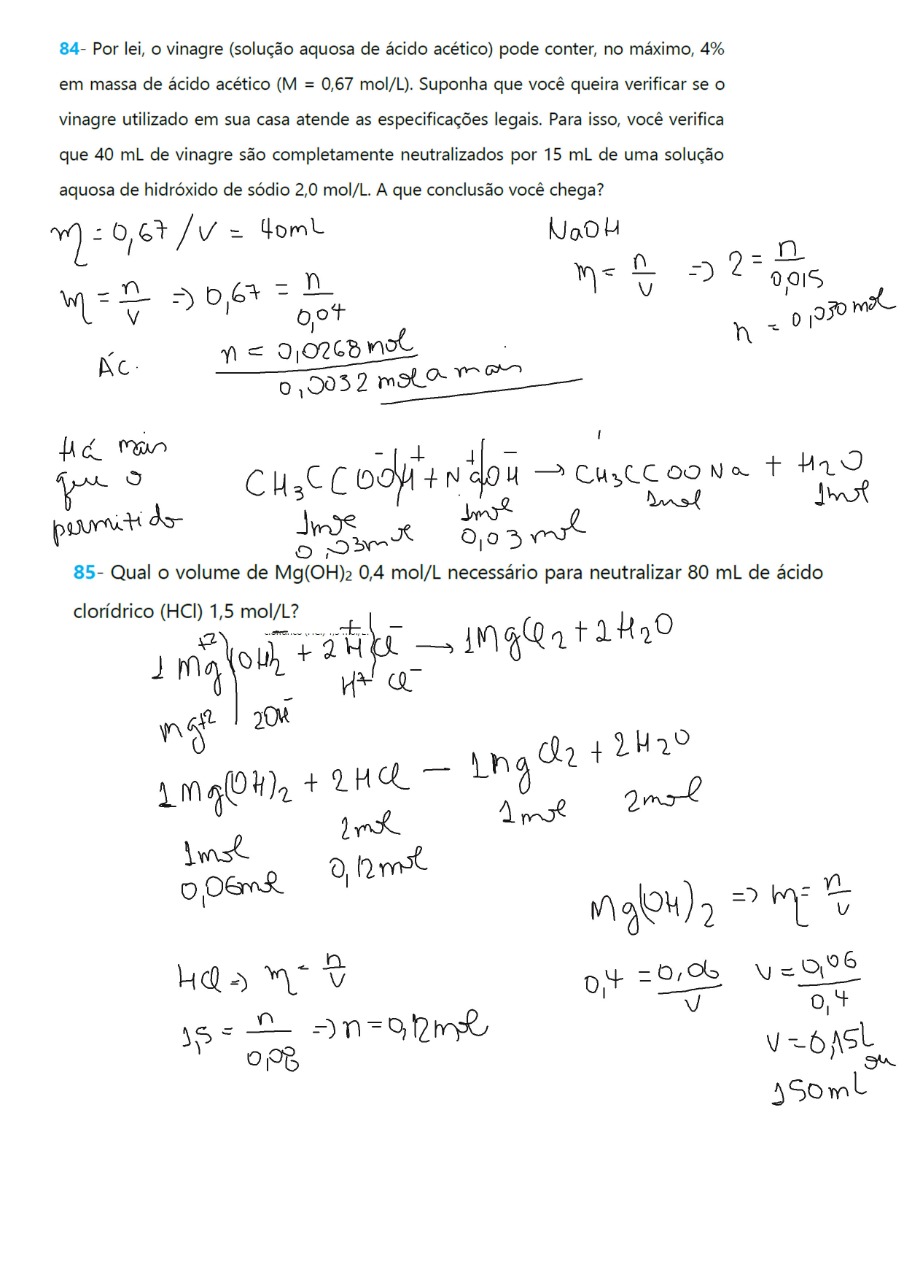 84- Por lei, o vinagre (solução aquosa de ácido acético) pode conter, no máximo, 4%
em massa de ácido acético (M = 0,67 mol/L). Suponha que você queira verificar se o
vinagre utilizado em sua casa atende as especificações legais. Para isso, você verifica
que 40 mL de vinagre são completamente neutralizados por 15 mL de uma solução
aquosa de hidróxido de sódio 2,0 mol/L. A que conclusão você chega?
M = 0,67 / V = 40mL
NaOH
M = n/V => 0,67 = n/0,04
M = n/V => 2 = n/0,015
n = 0,030 mol
Ác. n = 0,0268 mol
0,0032 mol a mais
Há mais
que o
permitido
CH3CCOO⁻H⁺ + Na⁺OH⁻ → CH3CCOONa + H2O
1mol 1mol 1mol 1mol
0,03mol 0,03 mol
85- Qual o volume de Mg(OH)₂ 0,4 mol/L necessário para neutralizar 80 mL de ácido
clorídrico (HCl) 1,5 mol/L?
1 Mg⁺²(OH)⁻2 + 2 H⁺Cl⁻ → 1MgCl2 + 2H2O
H⁺ Cl⁻
Mg⁺² 2OH⁻
1Mg(OH)2 + 2HCl — 1MgCl2 + 2H2O
1mol 2mol 1mol 2mol
0,06mol 0,12mol
Mg(OH)2 => M = n/V
HCl => M = n/V
0,4 = 0,06/V V = 0,06/0,4
1,5 = n/0,08 => n = 0,12mol
V = 0,15L
ou
150mL